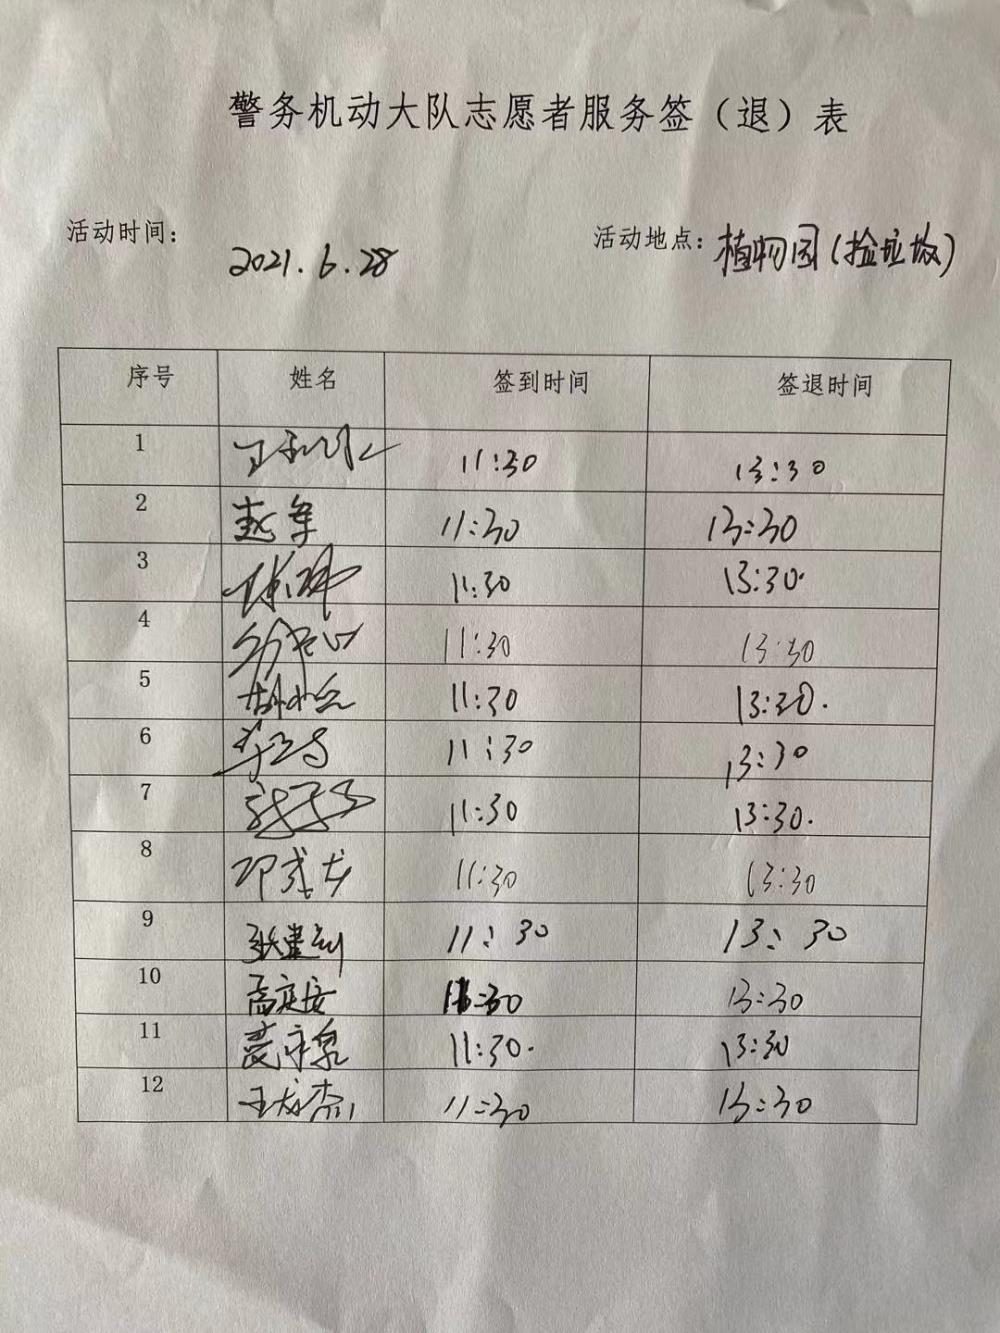 警务机动大队志愿者服务签（退）表
活动时间：
2021.6.28
活动地点：植物园(捡垃圾)
序号 姓名 签到时间 签退时间
1 11:30 13:30
2 赵军 11:30 13:30
3 11:30 13:30.
4 11:30 13:30
5 11:30 13:30.
6 11:30 13:30
7 11:30 13:30.
8 邓武龙 11:30 13:30
9 11:30 13:30
10 高定安 11:30 13:30
11 11:30. 13:30
12 王龙杰 11:30 13:30